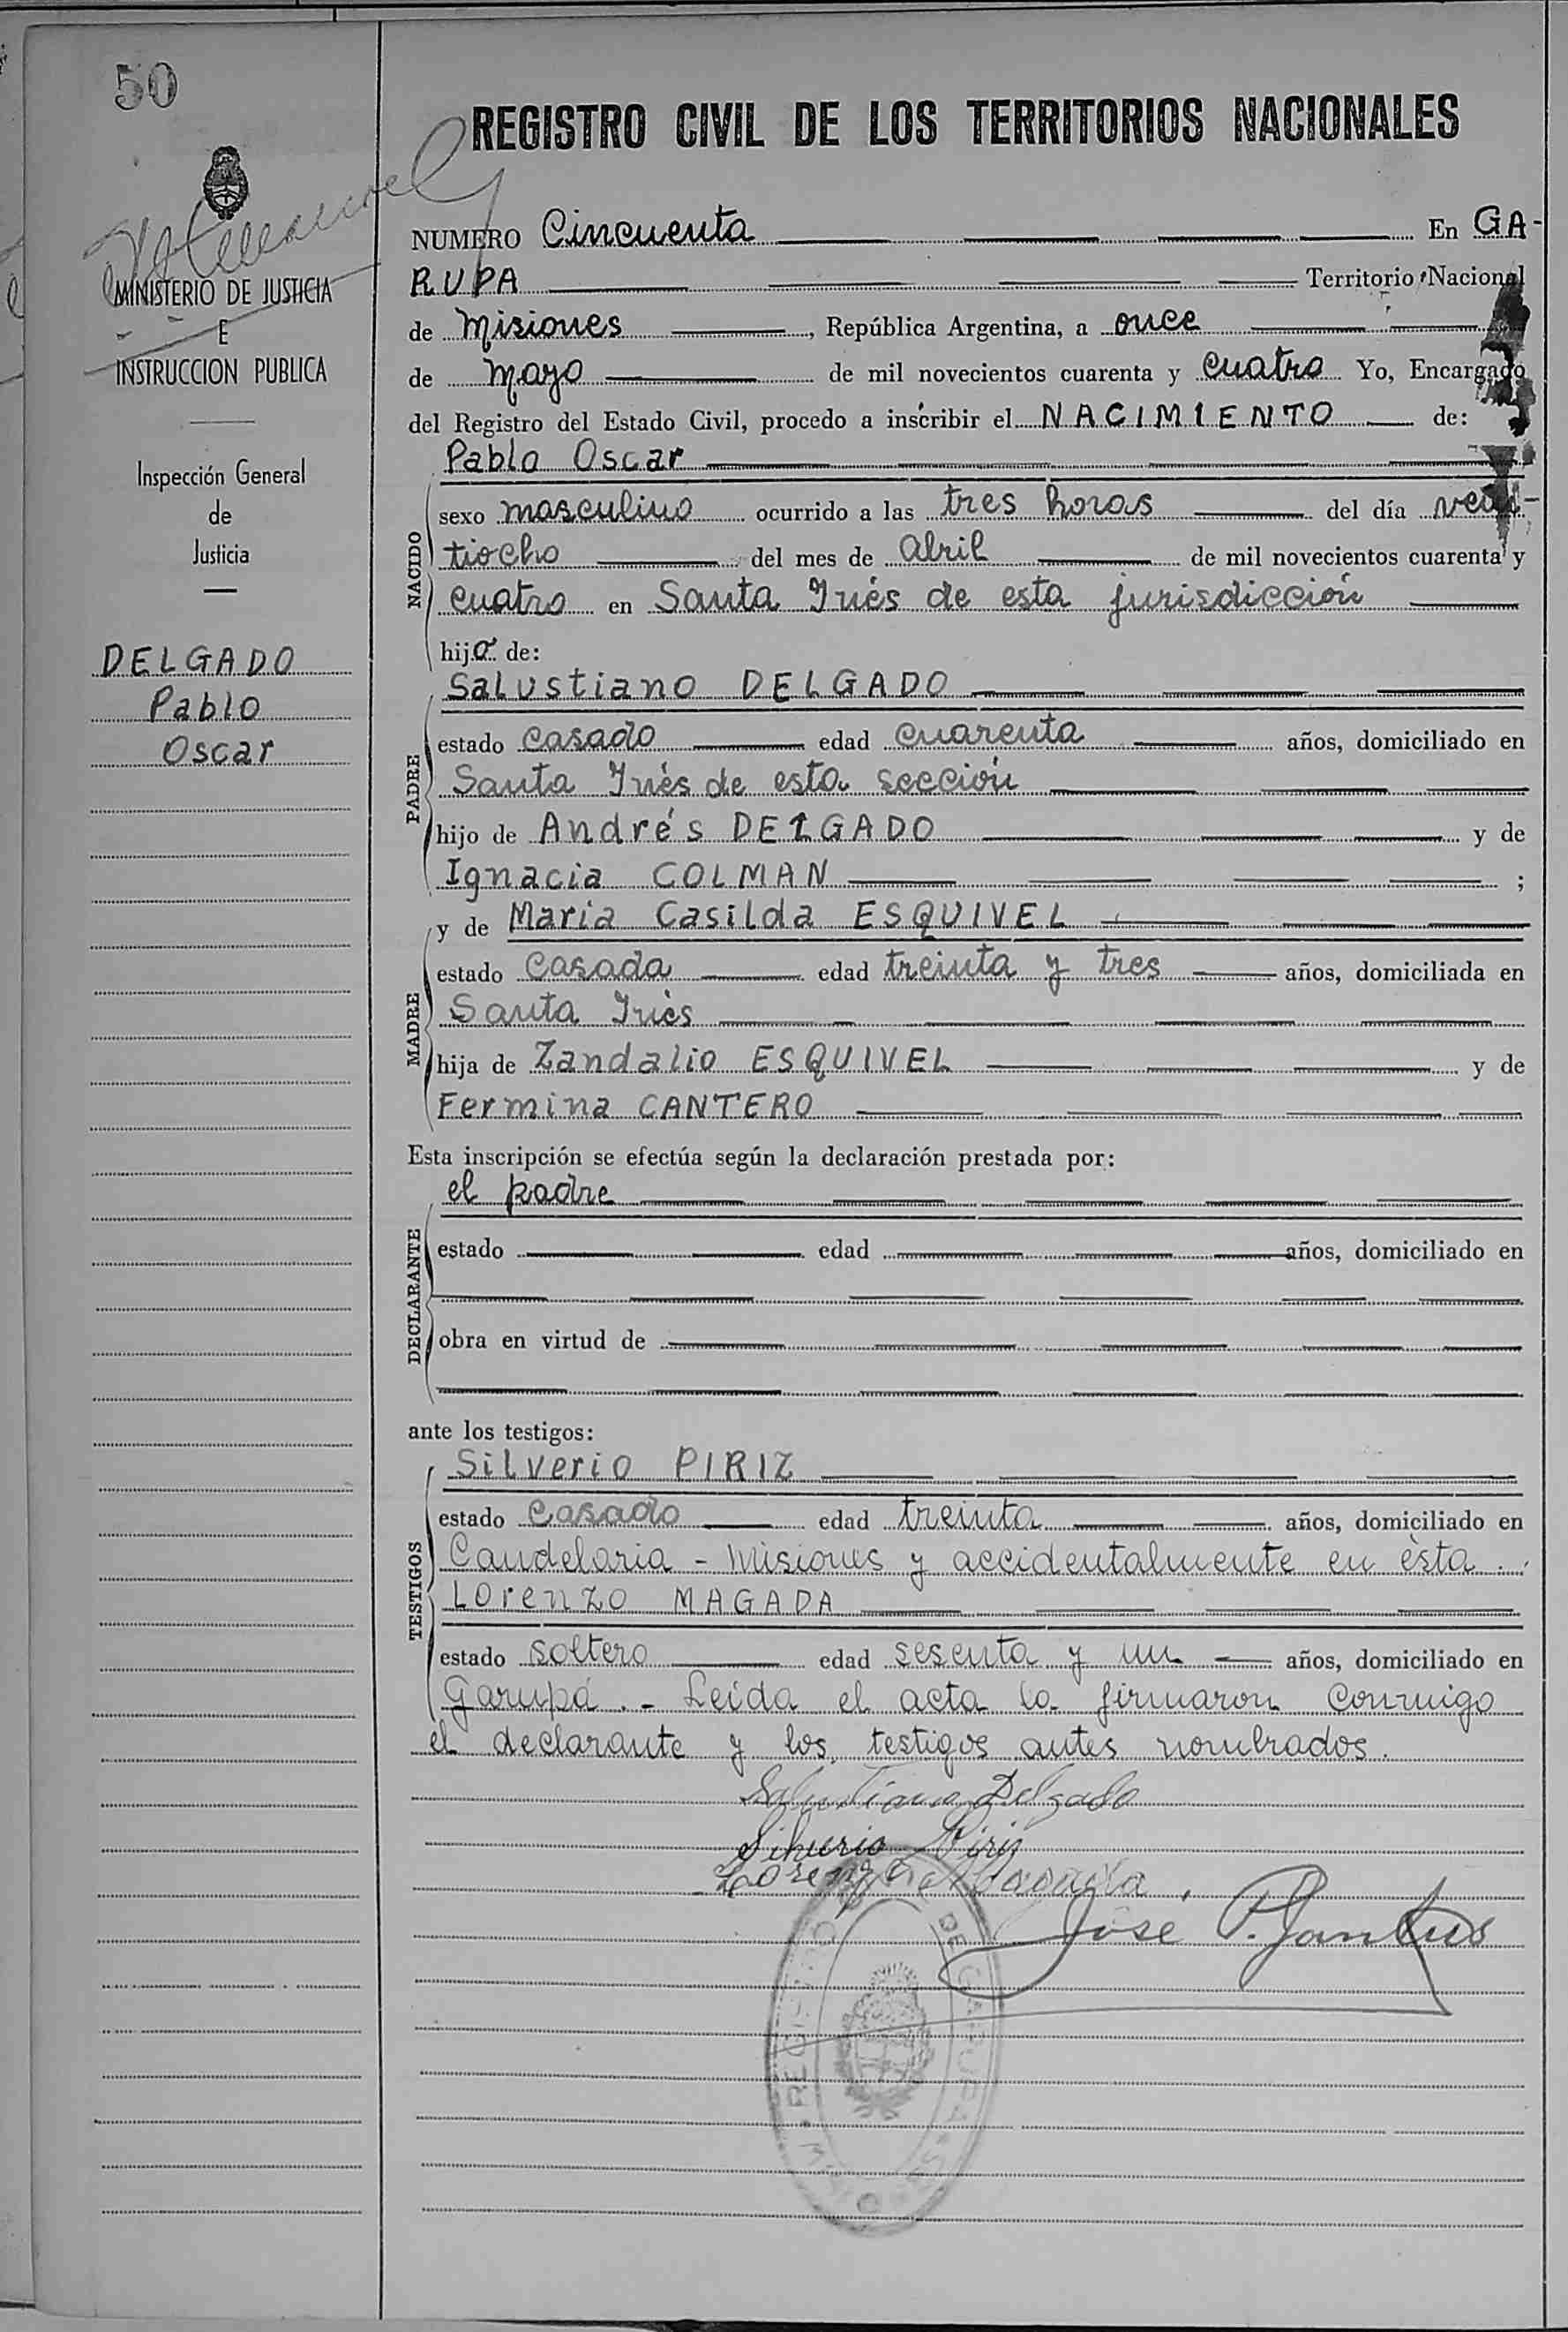 50
MINISTERIO DE JUSTICIA
E
INSTRUCCION PUBLICA
Inspección General
de
Justicia
DELGADO
Pablo
Oscar
REGISTRO CIVIL DE LOS TERRITORIOS NACIONALES
NUMERO Cincuenta En GA-
RUPA Territorio Nacional
de Misiones, República Argentina, a once
de mayo de mil novecientos cuarenta y cuatro Yo, Encargado
del Registro del Estado Civil, procedo a inscribir el NACIMIENTO de:
Pablo Oscar
NACIDO
sexo masculino ocurrido a las tres horas del día vein-
tiocho del mes de Abril de mil novecientos cuarenta y
cuatro en Santa Inés de esta jurisdicción
hijo de:
PADRE
Salustiano DELGADO
estado casado edad cuarenta años, domiciliado en
Santa Inés de esta sección
hijo de Andrés DELGADO y de
Ignacia COLMAN ;
MADRE
y de Maria Casilda ESQUIVEL
estado casada edad treinta y tres años, domiciliada en
Santa Inés
hija de Zandalio ESQUIVEL y de
Fermina CANTERO
Esta inscripción se efectúa según la declaración prestada por:
DECLARANTE
el padre
estado edad años, domiciliado en
obra en virtud de
ante los testigos:
TESTIGOS
Silverio PIRIZ
estado casado edad treinta años, domiciliado en
Candelaria - Misiones y accidentalmente en ésta.
Lorenzo MAGADA
estado soltero edad sesenta y un años, domiciliado en
Garupá.- Leída el acta la firmaron conmigo
el declarante y los testigos antes nombrados.
Salustiano Delgado
Silverio Piriz
Lorenzo Magada
José P.
REGISTRO DE GARUPA